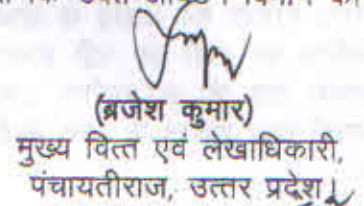 (ब्रजेश कुमार)
मुख्य वित्त एवं लेखाधिकारी,
पंचायतीराज, उत्तर प्रदेश।